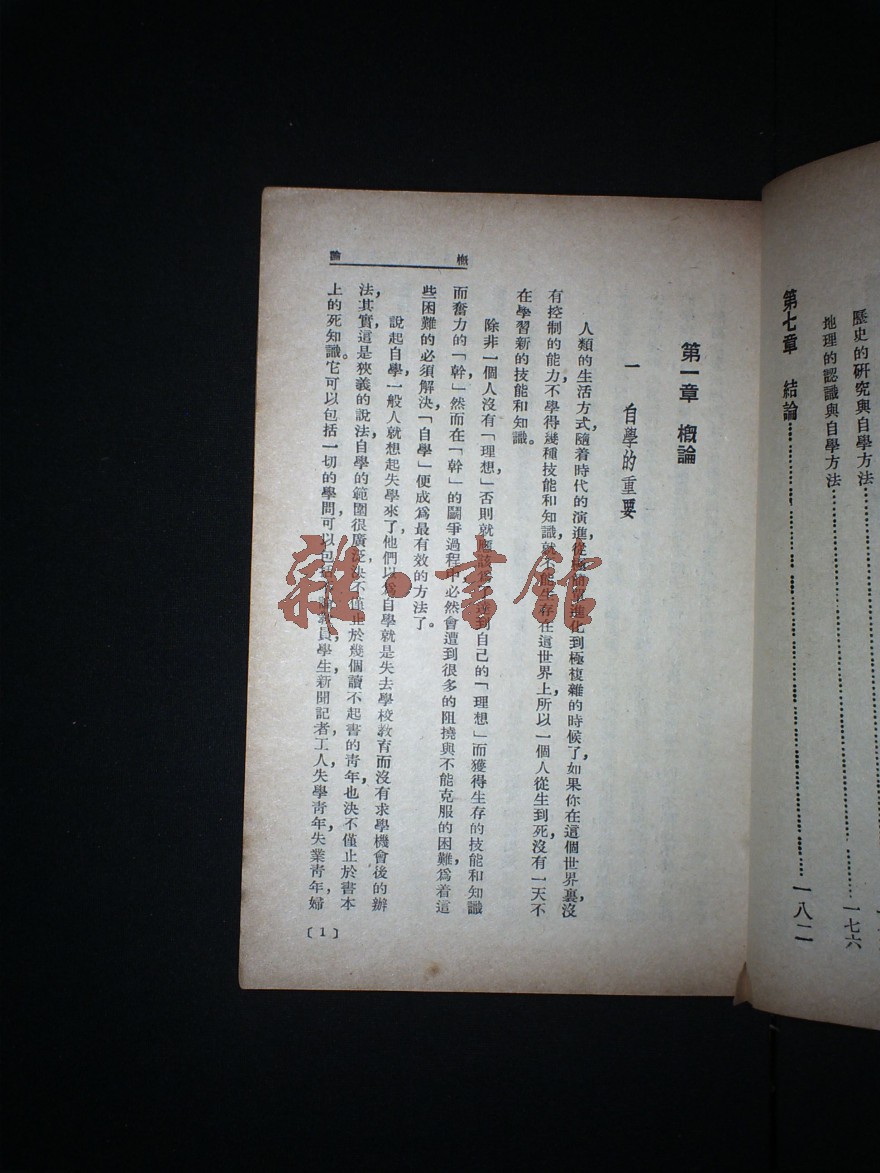 歷史的研究與自學方法……………一七六
地理的認識與自學方法
第七章　結論……………一八二
概論
第一章　概論
一　自學的重要
人類的生活方式，隨着時代的演進，從極簡單進化到極複雜的時候了，如果你在這個世界裏，沒
有控制的能力，不學得幾種技能和知識，就不能生存在這世界上，所以一個人從生到死，沒有一天不
在學習新的技能和知識。
除非一個人沒有「理想」，否則就應該爲了達到自己的「理想」而獲得生存的技能和知識
而奮力的「幹」，然而在「幹」的鬪爭過程中，必然會遭到很多的阻撓與不能克服的困難，爲着這
些困難的必須解決，「自學」便成爲最有效的方法了。
說起自學，一般人就想起失學來了，他們以爲自學就是失去學校教育而沒有求學機會後的辦
法，其實，這是狹義的說法，自學的範圍很廣泛，決不僅止於幾個讀不起書的靑年，也決不僅止於書本
上的死知識。它可以包括一切的學問，可以包括員，學生，新聞記者，工人，失學靑年，失業靑年，婦
〔1〕
雜·書館